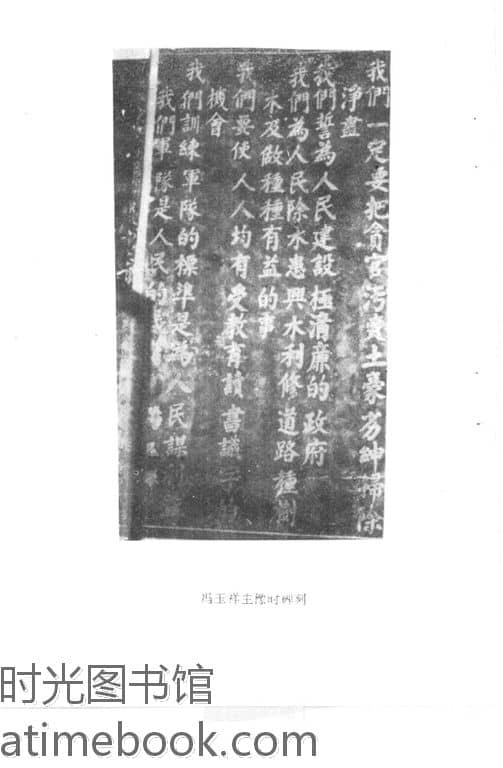 我們一定要把貪官污吏土豪劣紳掃除
淨盡
我們誓為人民建設極清廉的政府
我們為人民除水患興水利修道路種樹
木及做種種有益的事
我們要使人人均有受教育讀書識字的
機會
我們訓練軍隊的標準是為人民謀
我們軍隊是人民的
冯玉祥主豫时碑刻
时光图书馆
atimebook.com